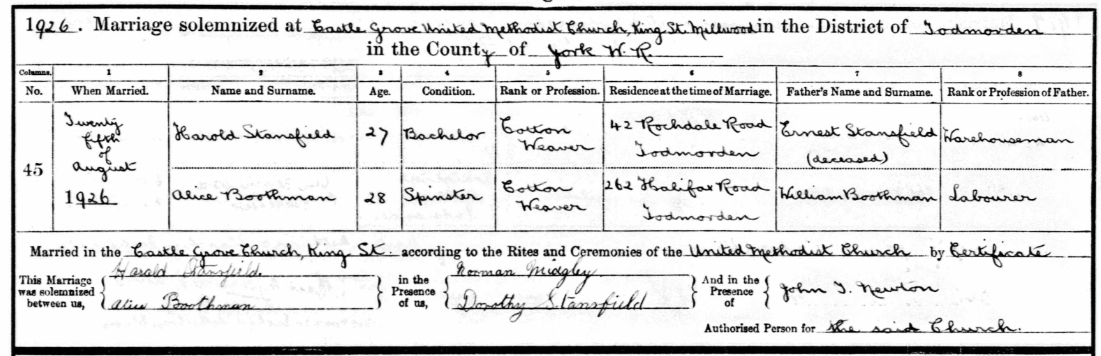 1926. Marriage solemnized at Castle Grove United Methodist Church, King St. Millwood in the District of Todmorden
in the County of York W.R.
Columns. 1 2 3 4 5 6 7 8
No. When Married. Name and Surname. Age. Condition. Rank or Profession. Residence at the time of Marriage. Father's Name and Surname. Rank or Profession of Father.
45
Twenty
fifth
of
August
1926
Harold Stansfield 27 Bachelor Cotton
Weaver
42 Rochdale Road
Todmorden
Ernest Stansfield
(deceased)
Warehouseman
Alice Boothman 28 Spinster Cotton
Weaver
262 Halifax Road
Todmorden
William Boothman Labourer
Married in the Castle Grove Church, King St. according to the Rites and Ceremonies of the United Methodist Church by Certificate
This Marriage
was solemnized
between us,
Harold Stansfield
Alice Boothman
in the
Presence
of us,
Norman Midgley
Dorothy Stansfield
And in the
Presence
of
John T. Newton
Authorised Person for the said Church.